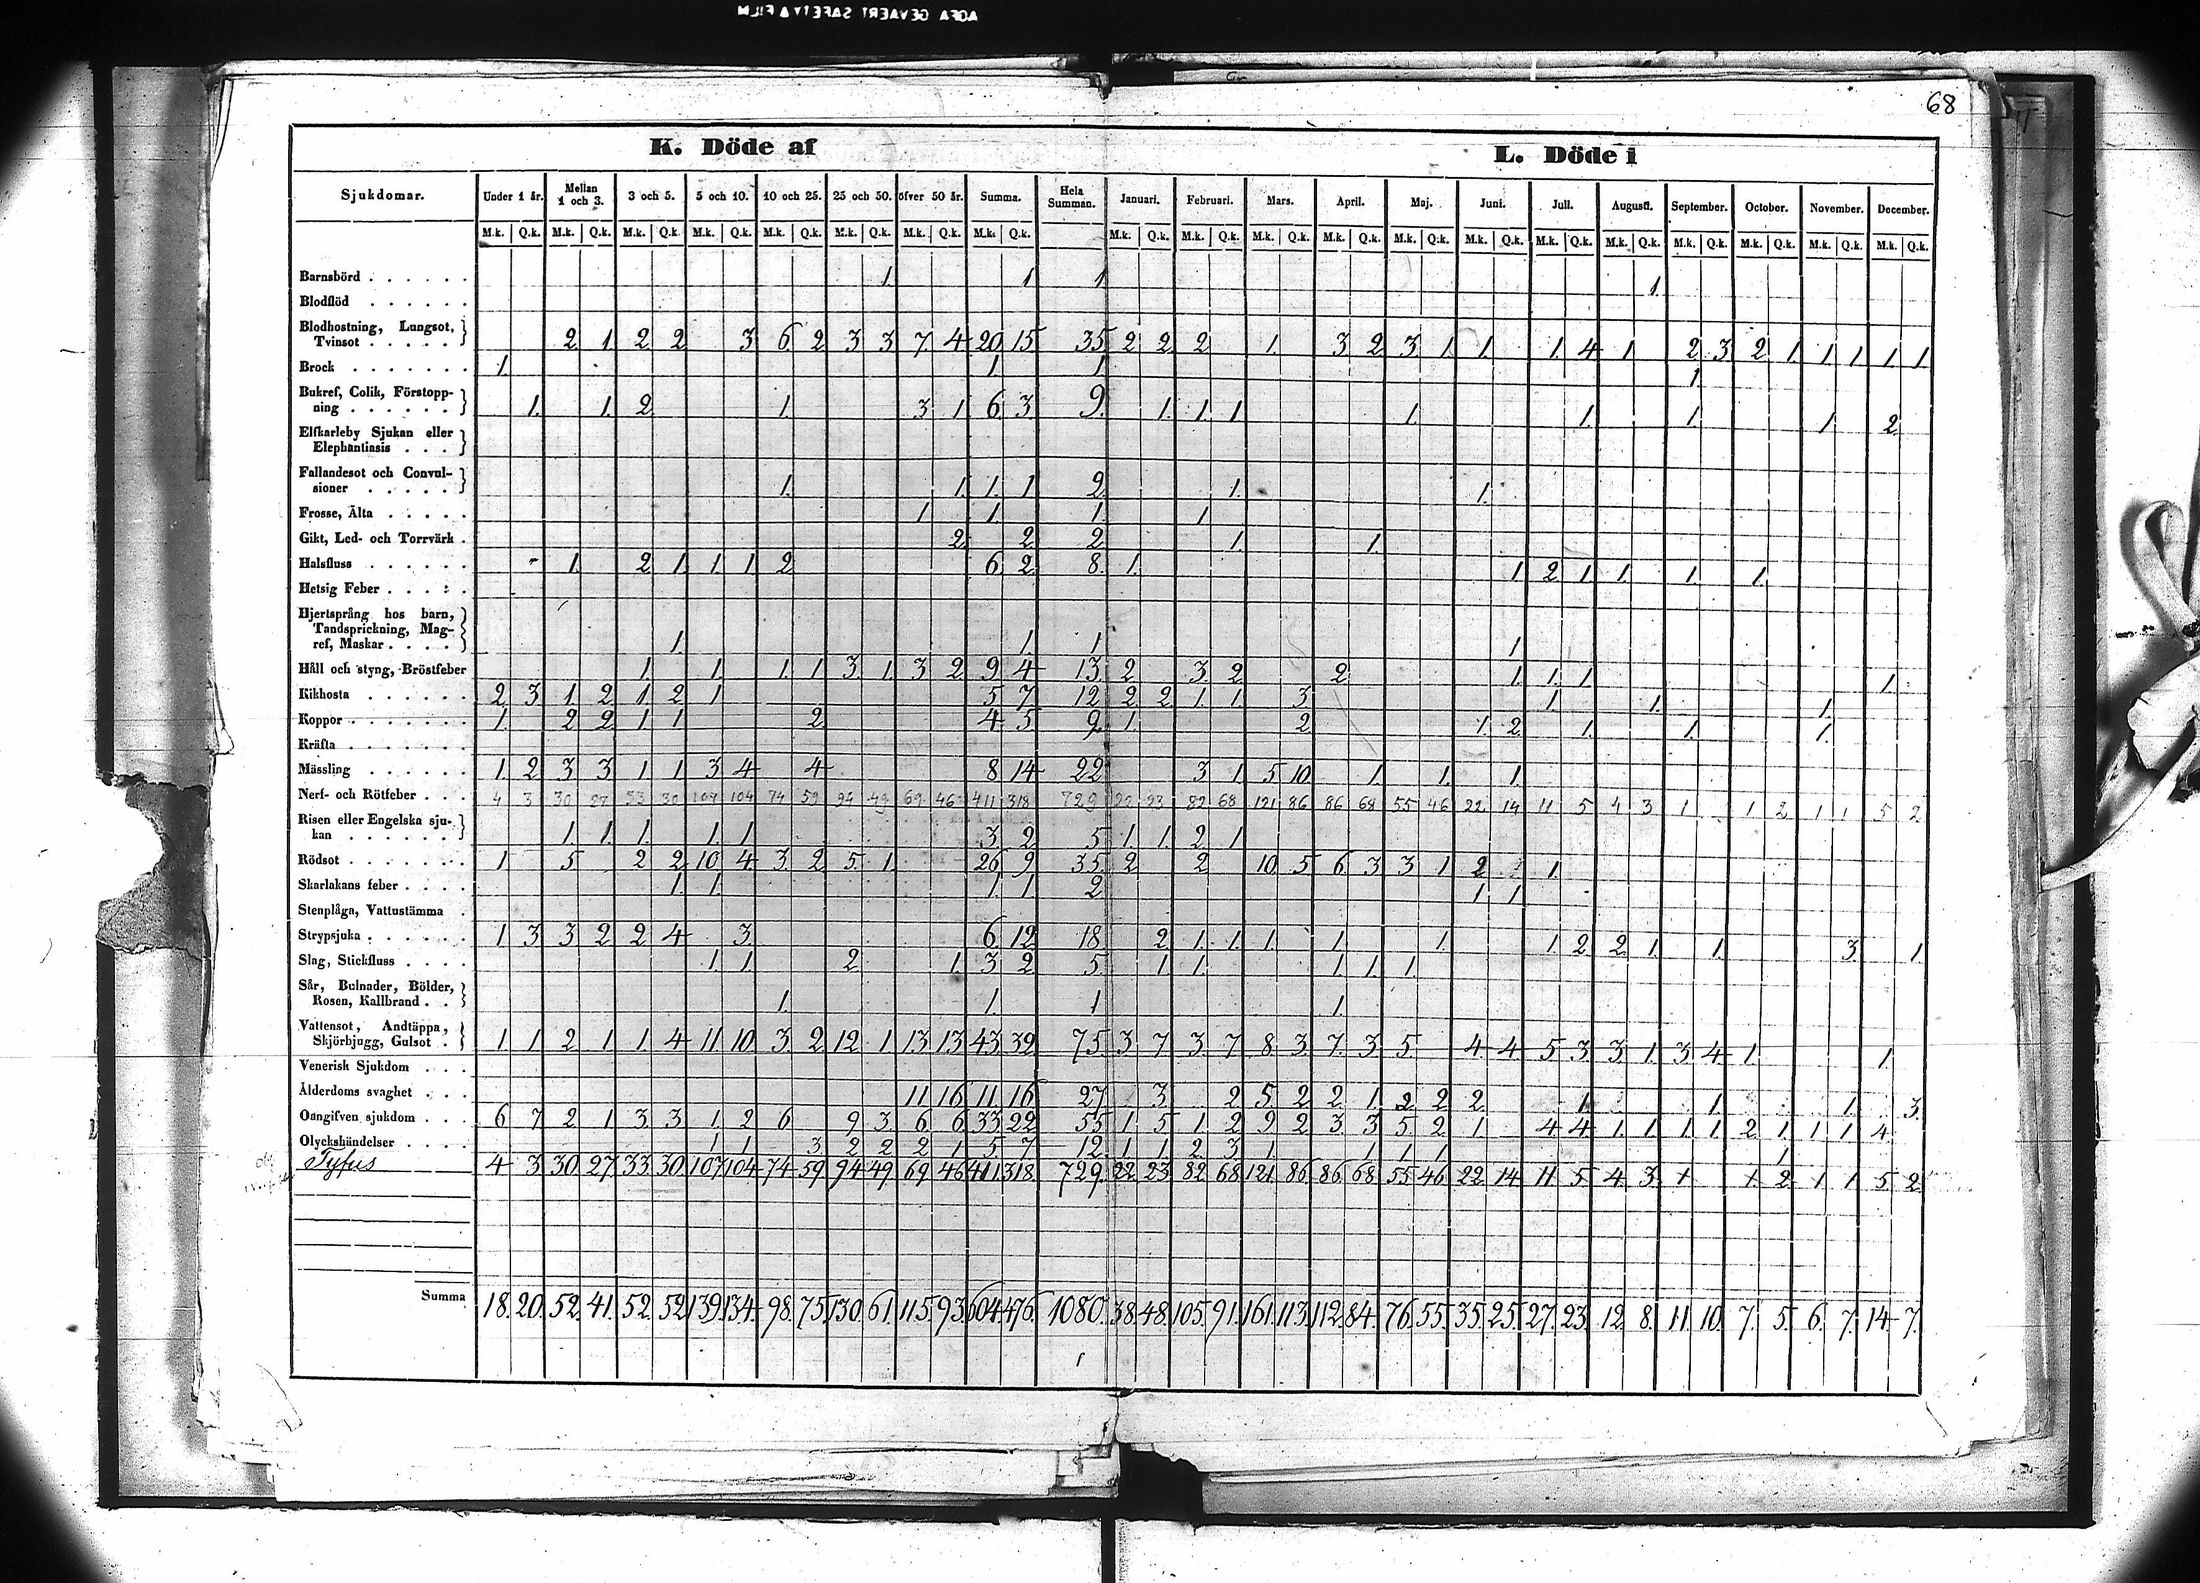 AGFA GEVAERT SAFETY FILM
68
K. Döde af L. Döde i
Sjukdomar. Under 1 år. Mellan 1 och 3. 3 och 5. 5 och 10. 10 och 25. 25 och 50. öfver 50 år. Summa. Hela Summan. Januari. Februari. Mars. April. Maj. Juni. Juli. Augusti. September. October. November. December.
M.k. Q.k. M.k. Q.k. M.k. Q.k. M.k. Q.k. M.k. Q.k. M.k. Q.k. M.k. Q.k. M.k. Q.k. M.k. Q.k. M.k. Q.k. M.k. Q.k. M.k. Q.k. M.k. Q.k. M.k. Q.k. M.k. Q.k. M.k. Q.k. M.k. Q.k. M.k. Q.k. M.k. Q.k. M.k. Q.k.
Barnsbörd 1 1 1 1
Blodflöd
Blodhostning, Lungsot,
Tvinsot 2 1 2 2 3 6 2 3 3 7 4 20 15 35 2 2 2 1 3 2 3 1 1 1 4 1 2 3 2 1 1 1 1 1
Brock 1 1 1 1
Bukref, Colik, Förstopp-
ning 1 1 2 1 3 1 6 3 9 1 1 1 1 1 1 1 2
Elfkarleby Sjukan eller
Elephantiasis
Fallandesot och Convul-
sioner 1 1 1 1 2 1 1
Frosse, Älta 1 1 1 1
Gikt, Led- och Torrvärk 2 2 2 1 1
Halsfluss 1 2 1 1 1 2 6 2 8 1 1 2 1 1 1 1
Hetsig Feber
Hjertsprång hos barn,
Tandsprickning, Mag-
ref, Maskar 1 1 1 1
Håll och styng, Bröstfeber 1 1 1 1 3 1 3 2 9 4 13 2 3 2 2 1 1 1 1
Kikhosta 2 3 1 2 1 2 1 5 7 12 2 2 1 1 3 1 1 1
Koppor 1 2 2 1 1 2 4 5 9 1 2 1 2 1 1 1
Kräfta
Mässling 1 2 3 3 1 1 3 4 4 8 14 22 3 1 5 10 1 1 1
Nerf- och Rötfeber 4 3 30 27 33 30 107 104 74 59 94 49 69 46 411 318 729 22 23 82 68 121 86 86 68 55 46 22 14 11 5 4 3 1 1 2 1 1 5 2
Risen eller Engelska sju-
kan 1 1 1 1 1 3 2 5 1 1 2 1
Rödsot 1 5 2 2 10 4 3 2 5 1 26 9 35 2 2 10 5 6 3 3 1 2 1
Skarlakans feber 1 1 1 1 2 1 1
Stenplåga, Vattustämma
Strypsjuka 1 3 3 2 2 4 3 6 12 18 2 1 1 1 1 1 1 2 2 1 1 3 1
Slag, Stickfluss 1 1 2 1 3 2 5 1 1 1 1 1
Sår, Bulnader, Bölder,
Rosen, Kallbrand 1 1 1 1
Vattensot, Andtäppa,
Skjörbjugg, Gulsot 1 1 2 1 1 4 11 10 3 2 12 1 13 13 43 32 75 3 7 3 7 8 3 7 3 5 4 4 5 3 3 1 3 4 1 1
Venerisk Sjukdom
Ålderdoms svaghet 11 16 11 16 27 3 2 5 2 2 1 2 2 2 1 1 1 3
Oangifven sjukdom 6 7 2 1 3 3 1 2 6 9 3 6 6 33 22 55 1 5 1 2 9 2 3 3 5 2 1 4 4 1 1 1 1 2 1 1 1 4
Olyckshändelser 1 1 3 2 2 2 1 5 7 12 1 1 2 3 1 1 1 1 1
Tyfus 4 3 30 27 33 30 107 104 74 59 94 49 69 46 411 318 729 22 23 82 68 121 86 86 68 55 46 22 14 11 5 4 3 1 1 2 1 1 5 2
Summa 18. 20. 52. 41. 52. 52 139 134. 98. 75. 130. 61. 115. 93. 604. 476. 1080. 38. 48. 105. 91. 161. 113. 112. 84. 76. 55. 35. 25. 27. 23. 12. 8. 11. 10. 7. 5. 6. 7. 14. 7.